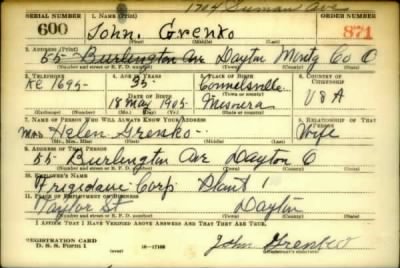 1704 Suman Ave
SERIAL NUMBER 1. NAME (Print) ORDER NUMBER
600 John. Grenko 871
(First) (Middle) (Last)
2. ADDRESS (Print)
55- Burlington Ave Dayton Montg Co O
(Number and street or R. F. D. number) (Town) (County) (State)
3. TELEPHONE 4. AGE IN YEARS 5. PLACE OF BIRTH 6. COUNTRY OF CITIZENSHIP
KE 1695- 35 Connelsville
DATE OF BIRTH (Town or county)
18 May 1905 U S A
(Exchange) (Number) (Mo.) (Day) (Yr.) (State or country)
7. NAME OF PERSON WHO WILL ALWAYS KNOW YOUR ADDRESS 8. RELATIONSHIP OF THAT PERSON
Mrs Helen Grenko Wife
(Mr., Mrs., Miss) (First) (Middle) (Last)
9. ADDRESS OF THAT PERSON
55- Burlington Ave Dayton O
(Number and street or R. F. D. number) (Town) (County) (State)
10. EMPLOYER'S NAME
Frigidaire Corp Plant 1
11. PLACE OF EMPLOYMENT OR BUSINESS
Taylor St Dayton
(Number and street or R. F. D. number) (Town) (County) (State)
I AFFIRM THAT I HAVE VERIFIED ABOVE ANSWERS AND THAT THEY ARE TRUE.
REGISTRATION CARD
D. S. S. Form 1 16—17105 John Grenko